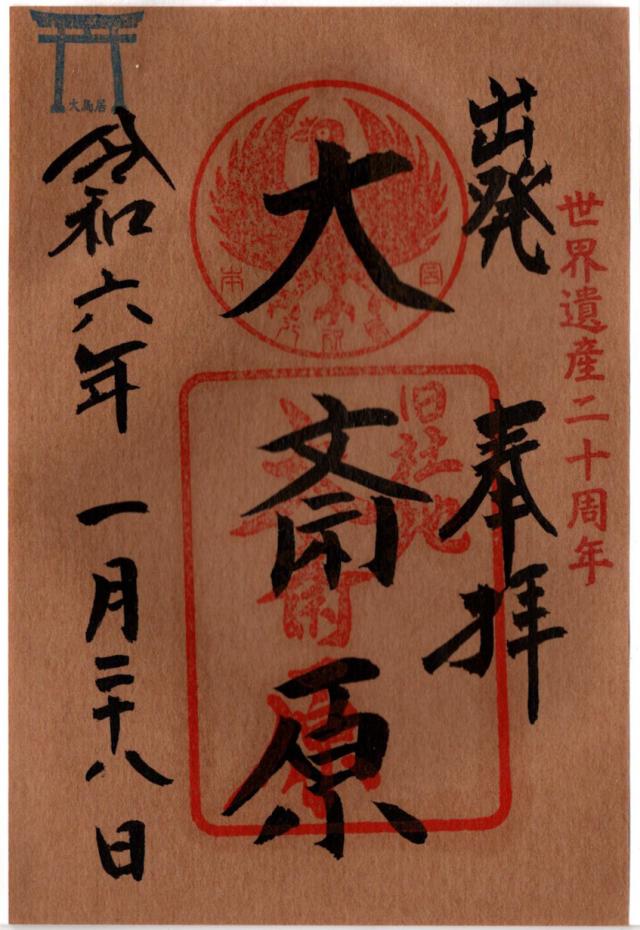 世界遺産二十周年
出発
奉拝
大斎原
旧社地
大斎原
令和六年 一月二十八日
大鳥居